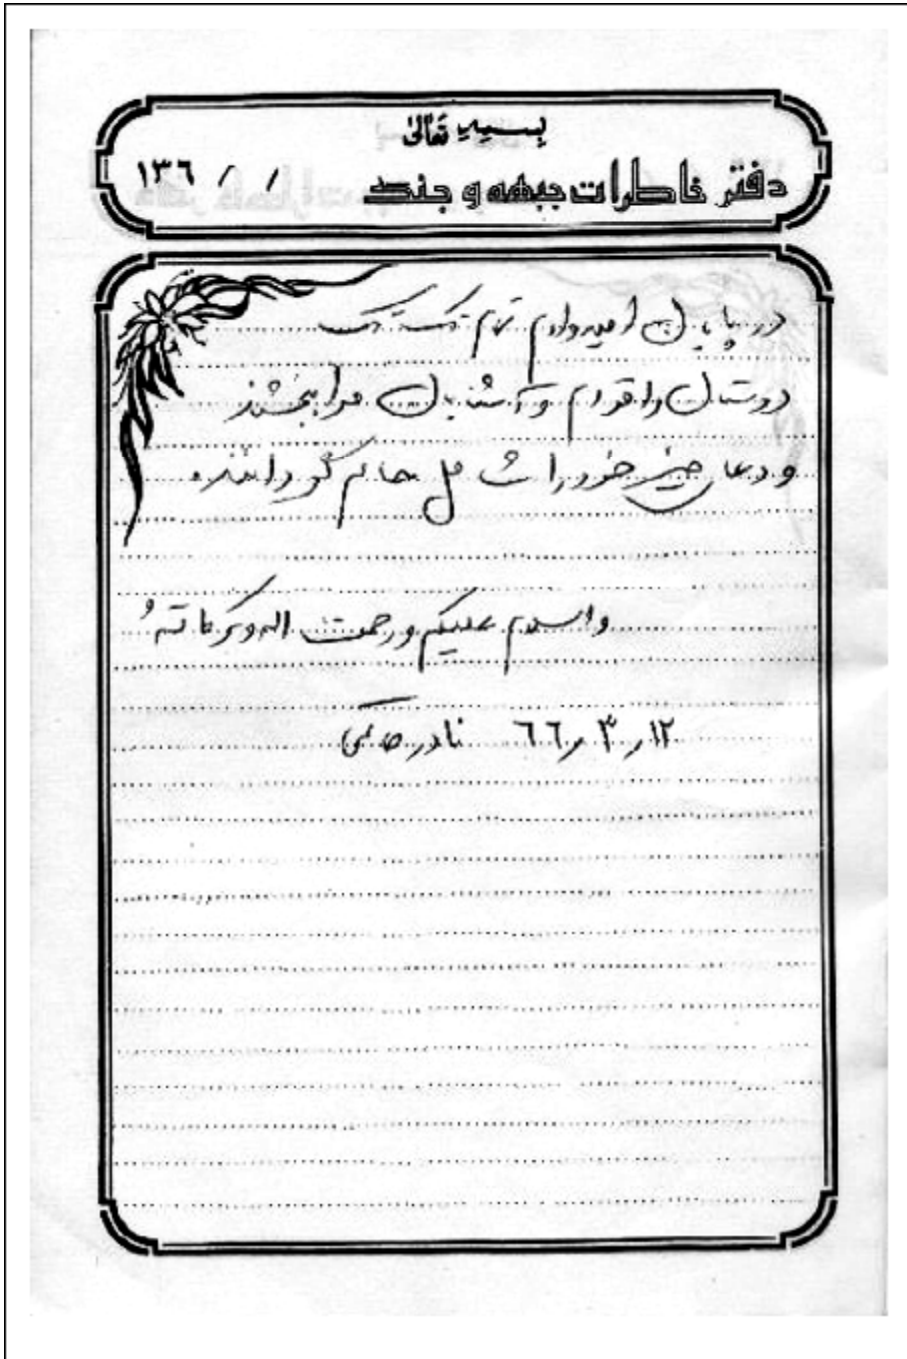 بسمه تعالی
دفتر خاطرات جبهه و جنگ / / ۱۳۶
در پایان امیدوارم تمام تک تک
دوستان و اقوام و آشنایان مرا ببخشند
و دعای خیر خود را شامل حالم گردانند.
والسلام علیکم و رحمت اله و برکاته
۱۲ر۳ر۶۶ نادر